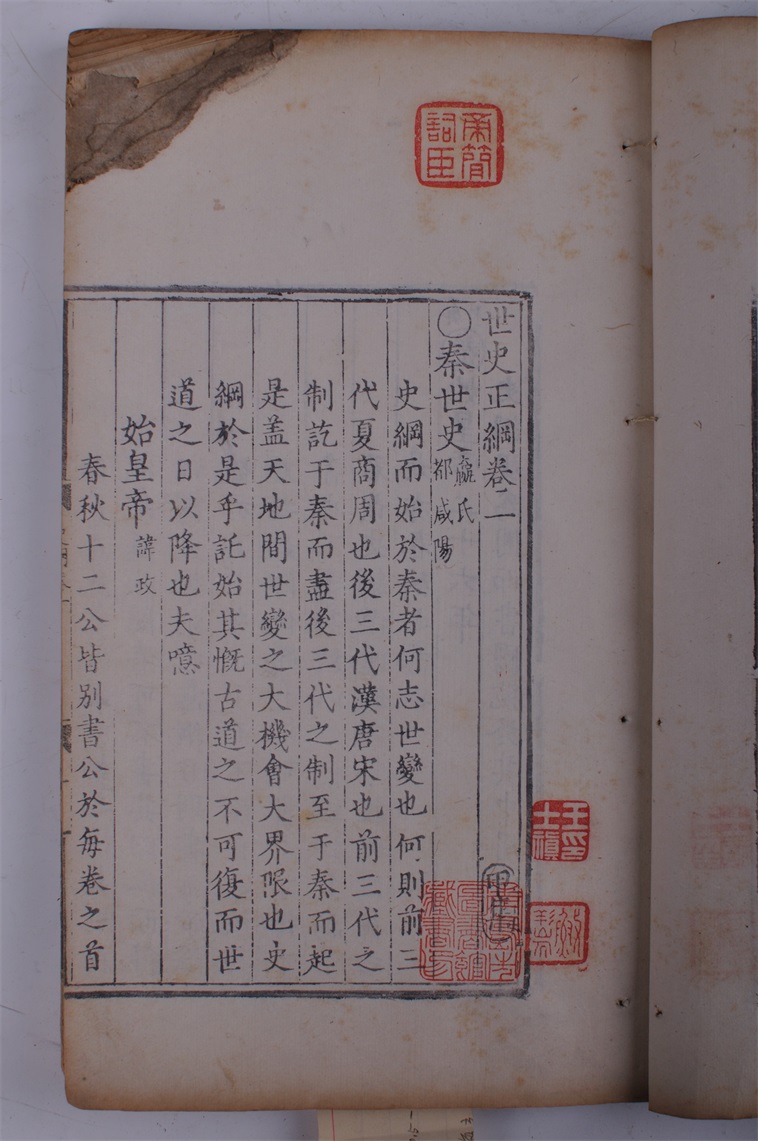 世史正綱卷二
○秦世史嬴氏都咸陽
史綱而始於秦者何志世變也何則前三
代夏商周也後三代漢唐宋也前三代之
制訖于秦而盡後三代之制至于秦而起
是盖天地間世變之大機會大界限也史
綱於是乎託始其慨古道之不可復而世
道之日以降也夫噫
始皇帝諱政
春秋十二公皆别書公於每卷之首
王士禛印